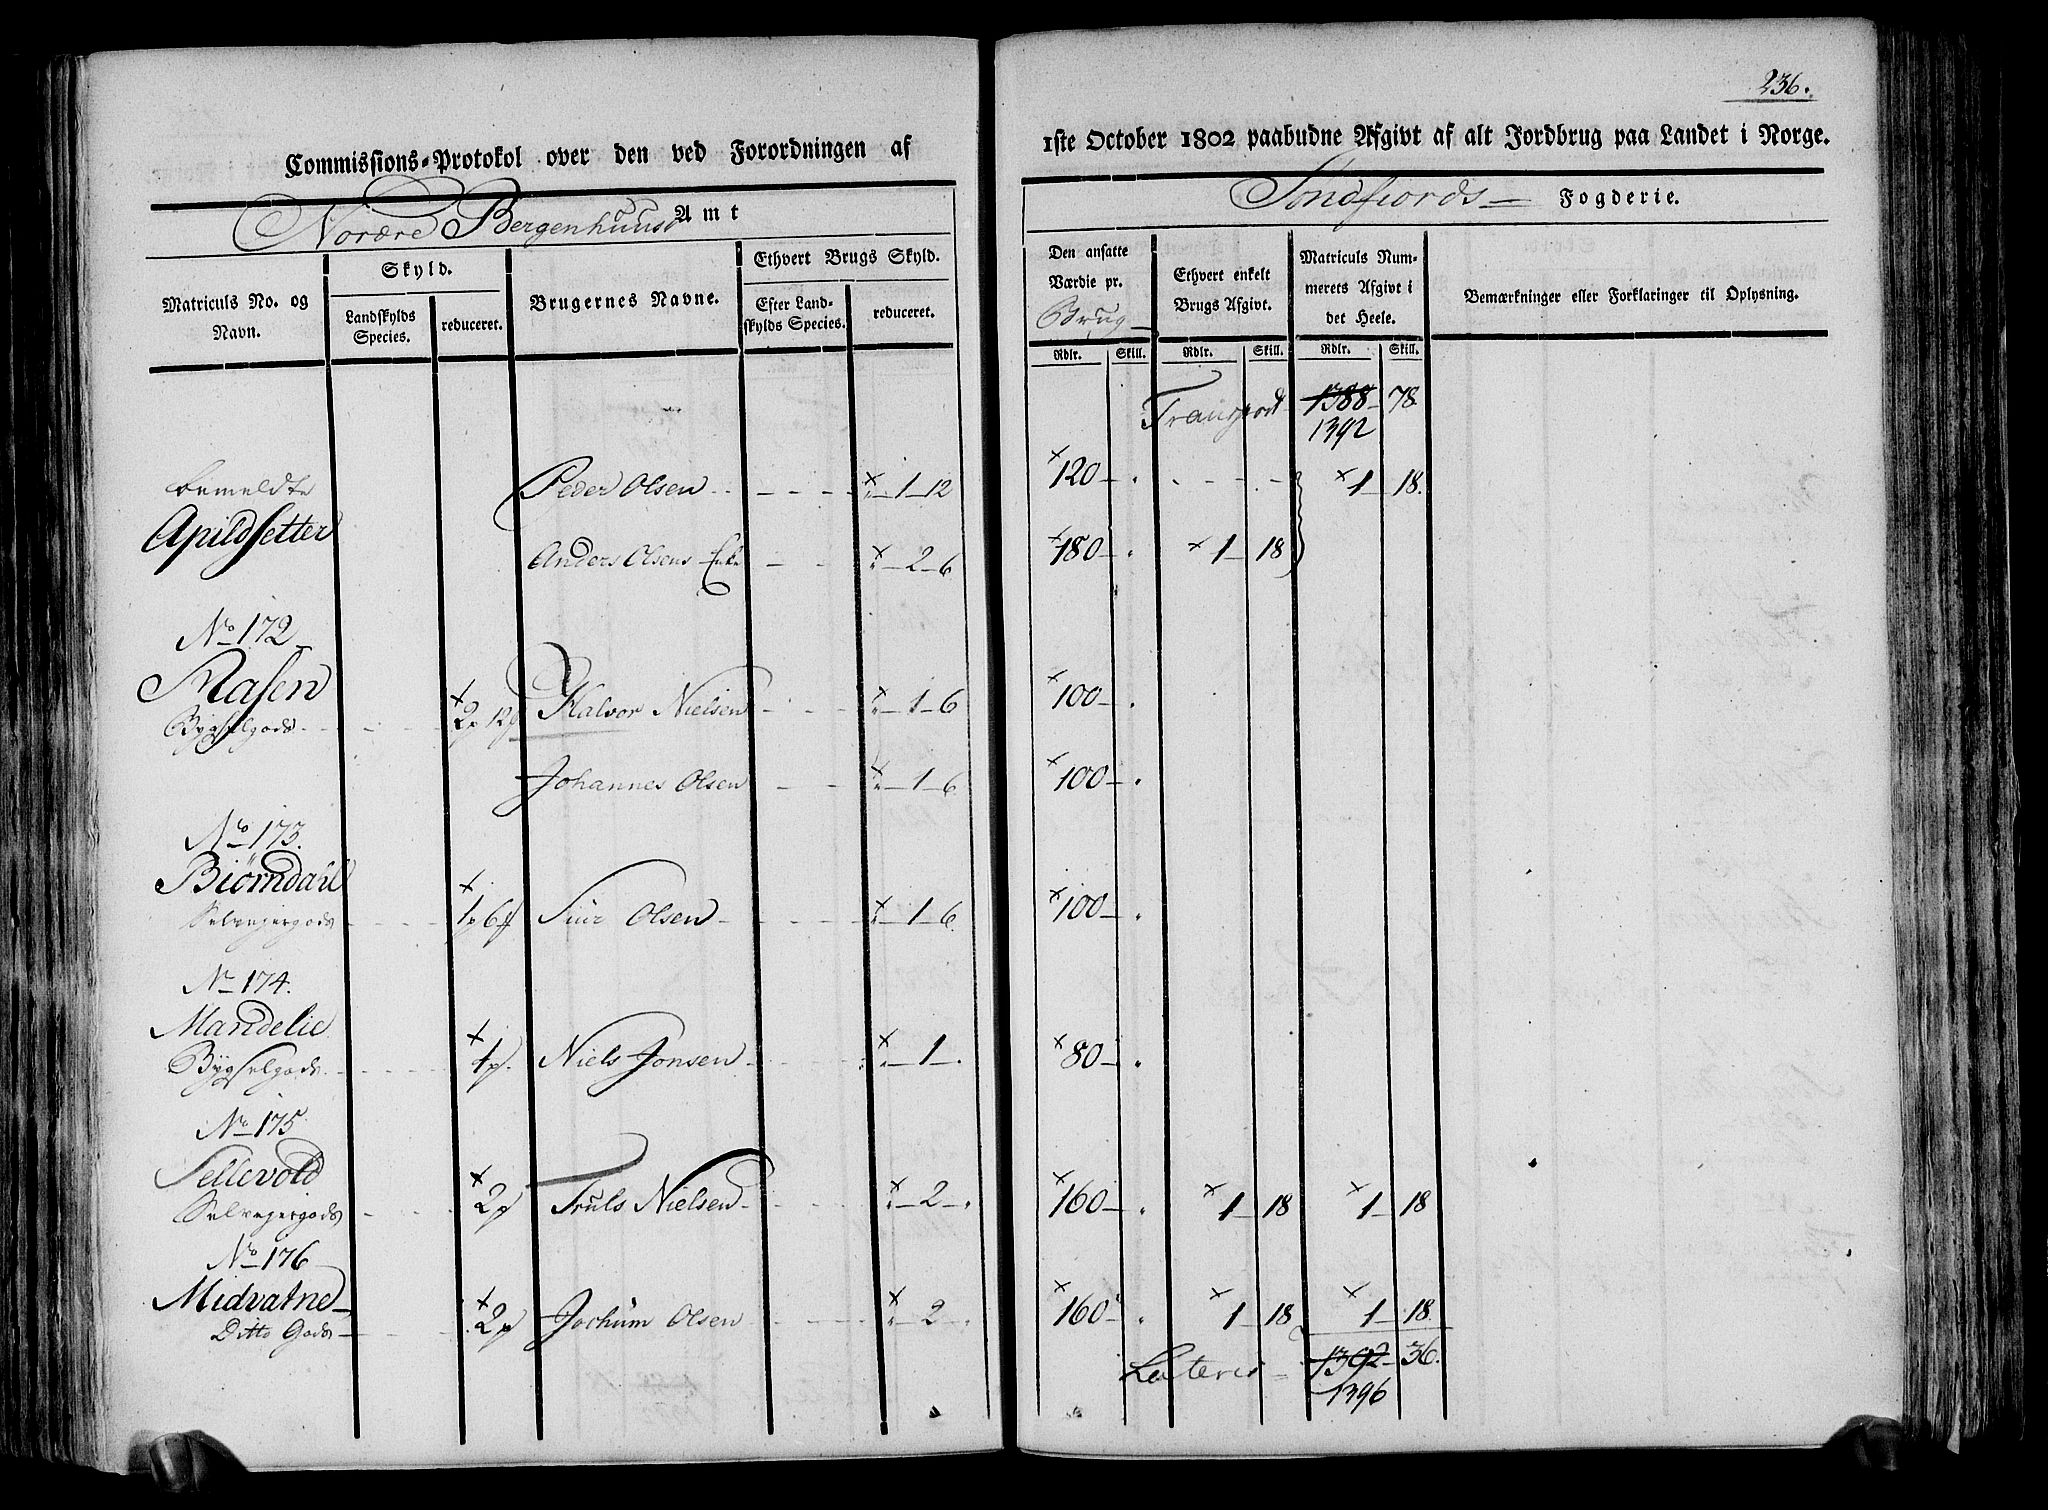 236.
Commissions-Protokol over den ved Forordningen af
1ste October 1802 paabudne Afgivt af alt Jordbrug paa Landet i Norge.
Nordre Bergenhuus Amt
Søndfiords Fogderie.
Matriculs No. og Navn.
Skyld.
Landskylds Species.
reduceret.
Brugernes Navne.
Ethvert Brugs Skyld.
Efter Landskylds Species.
reduceret.
Den ansatte Værdie pr. Brug
Ethvert enkelt Brugs Afgivt.
Matriculs Nummerets Afgivt i det Heele.
Bemærkninger eller Forklaringer til Oplysning.
Rdlr. Skill. Rdlr. Skill. Rdlr. Skill.
Transport 1388 - 78.
1392
bemeldte Peder Olsen - 1 - 12 120 - 1 - 18.
Apildsetter
Anders Olsens Enke - 2 - 6 180 - 1 - 18
No 172
Aasen
Bygselgods 2p 12 Halvor Nielsen - 1 - 6 100 -
Johannes Olsen - 1 - 6 100 -
No 173.
Biørndail
Selvejergods 1p 6 Siur Olsen - 1 - 6. 100 -
No 174.
Mandelie
Bygselgods 1p. Niels Jonsen - 1 - 80 -
No 175
Sellevold
Selvejergods 2p Truls Nielsen - 2 - 160 - 1 - 18 1 - 18
No 176
Midvatne
Ditto Gods 2p Jochum Olsen - 2 - 160 - 1 - 18 1 - 18.
Lateris 1392 - 36.
1396